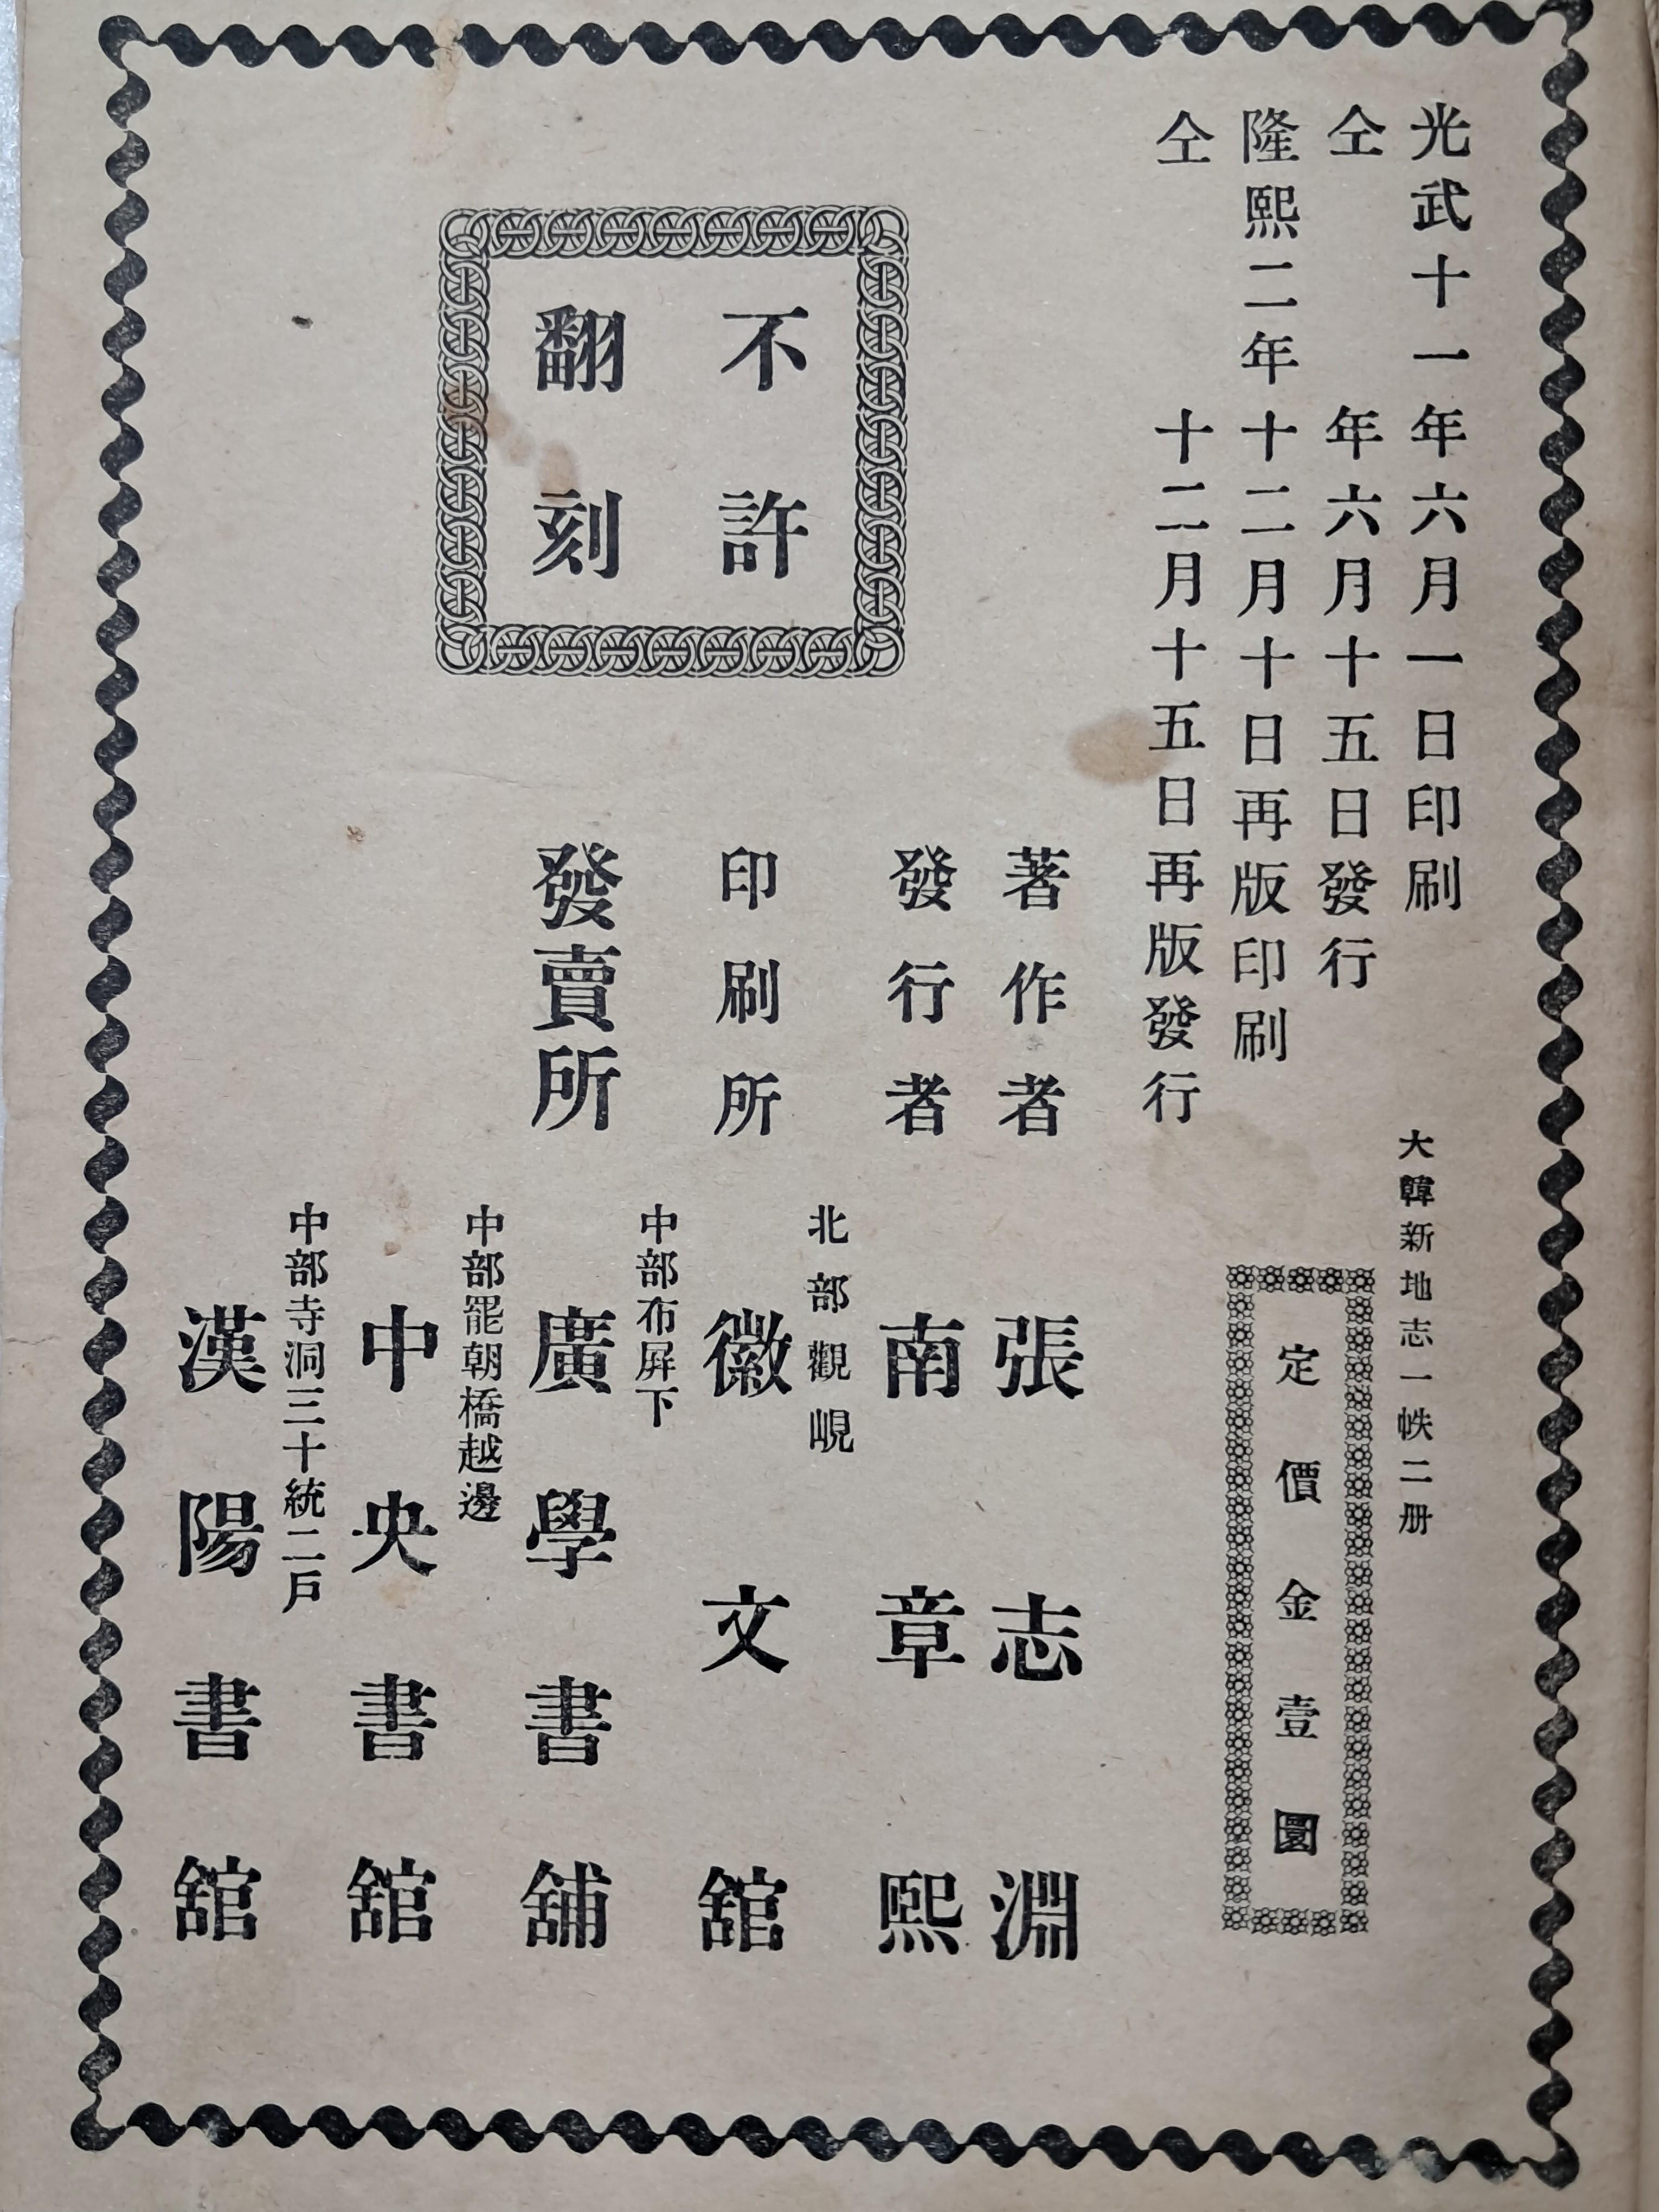 光武十一年六月一日印刷
仝年六月十五日發行
隆熙二年十二月十日再版印刷
仝十二月十五日再版發行
大韓新地志一帙二册
定價金壹圜
不許
翻刻
著作者 張志淵
發行者 南章熙
北部觀峴
印刷所 徽文舘
中部布屛下
發賣所 廣學書舖
中部罷朝橋越邊
中央書舘
中部寺洞三十統二戶
漢陽書舘